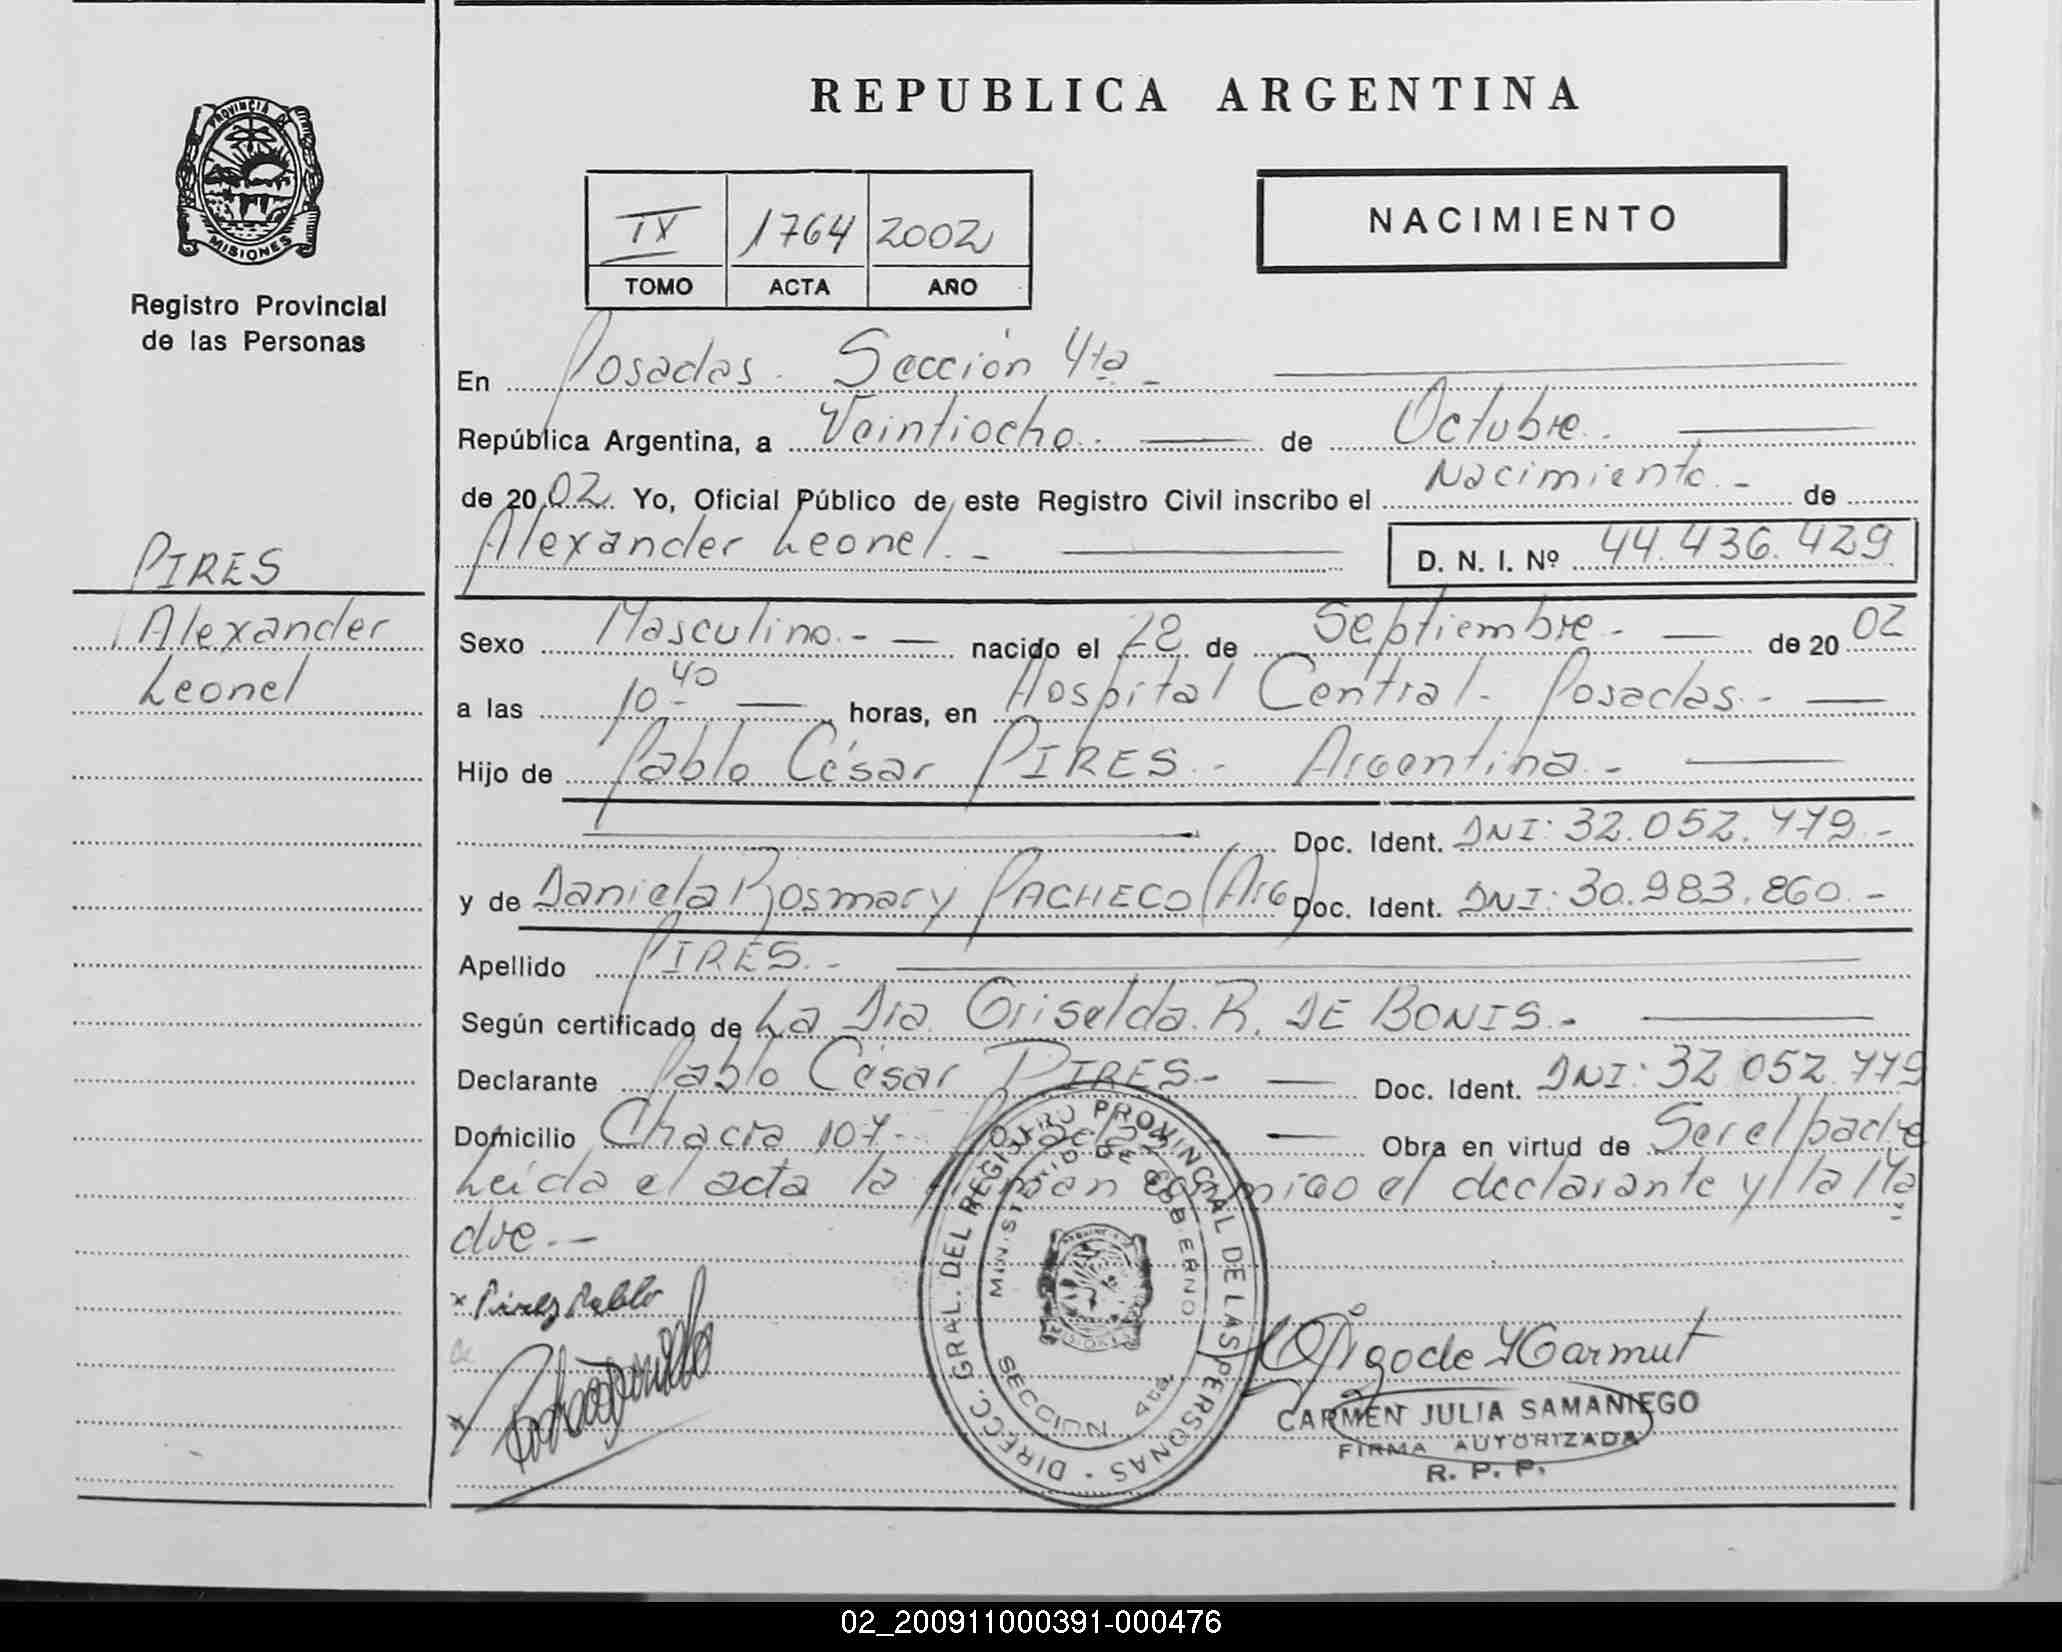 PROVINCIA DE
MISIONES
Registro Provincial
de las Personas
PIRES
Alexander
Leonel
REPUBLICA ARGENTINA
IX 1764 2002
TOMO ACTA AÑO
NACIMIENTO
En Posadas. Sección 4ta.-
República Argentina, a Veintiocho.- de Octubre.-
de 2002. Yo, Oficial Público de este Registro Civil inscribo el Nacimiento.- de
Alexander Leonel.- D. N. I. Nº 44.436.429
Sexo Masculino.- nacido el 28 de Septiembre.- de 2002
a las 10.40 horas, en Hospital Central. Posadas.-
Hijo de Pablo César PIRES.- Argentina.-
Doc. Ident. DNI: 32.052.779.-
y de Daniela Rosmary PACHECO (Arg) Doc. Ident. DNI: 30.983.860.-
Apellido PIRES.-
Según certificado de La Dra. Griselda. R. DE BONIS.-
Declarante Pablo César PIRES.- Doc. Ident. DNI: 32 052.779
Domicilio Chacra 107.- Posadas Obra en virtud de Ser el padre
Leída el acta la firman conmigo el declarante y la Ma
dre.-
DIRECC. GRAL. DEL REGISTRO PROVINCIAL DE LAS PERSONAS
MINISTERIO DE GOBIERNO
SECCION 4ta.
CARMEN JULIA SAMANIEGO
FIRMA AUTORIZADA
R. P. P.
02_200911000391-000476